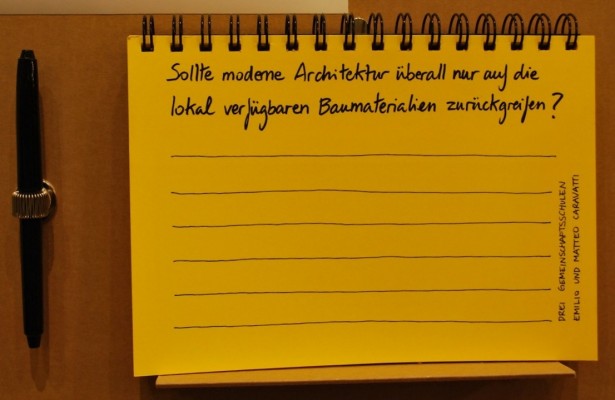 Sollte moderne Architektur überall nur auf die
lokal verfügbaren Baumaterialien zurückgreifen?
DREI GEMEINSCHAFTSSCHULEN
EMILIO UND MATTEO CARAVATTI